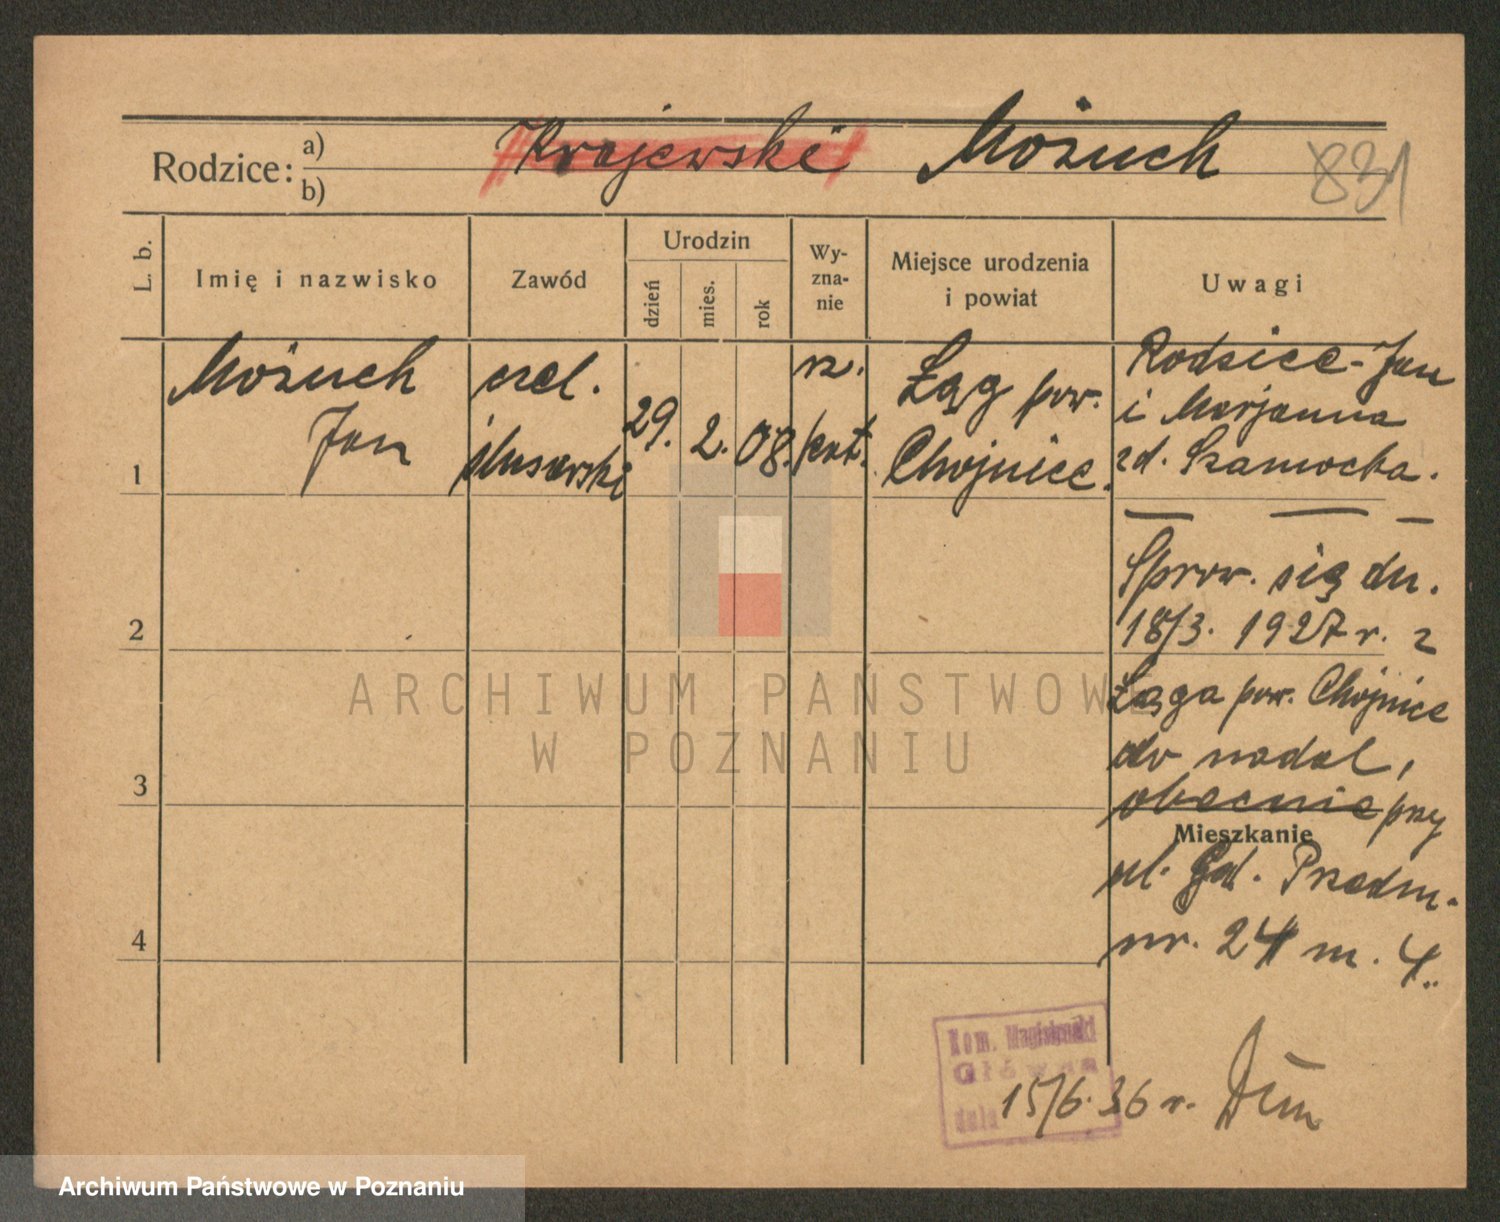 Rodzice: a) b) Krajewski Możuch 831
L. b.
Imię i nazwisko
Zawód
Urodzin
dzień
mies.
rok
Wy-
zna-
nie
Miejsce urodzenia
i powiat
Uwagi
1
Możuch
Jan
czel.
ślusarski
29. 2. 08.
rz.
kat.
Łąg pow.
Chojnice.
Rodzice - Jan
i Marjanna
zd. Szamocka.
Sprow. się dn.
18/3. 1927 r. z
Łąga pow. Chojnice
do nadal,
obecnie przy
Mieszkanie
ul. Gd. Przedm.
nr. 24 m. 4.
2
3
4
Kom. Magistracki
Główna
dnia 15/6. 36 r.
ARCHIWUM PAŃSTWOWE
W POZNANIU
Archiwum Państwowe w Poznaniu